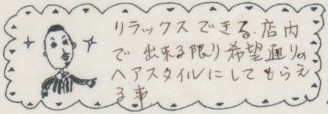 リラックスできる.店内
で出来る限り希望通りの
ヘアスタイルにしてもらえ
る事